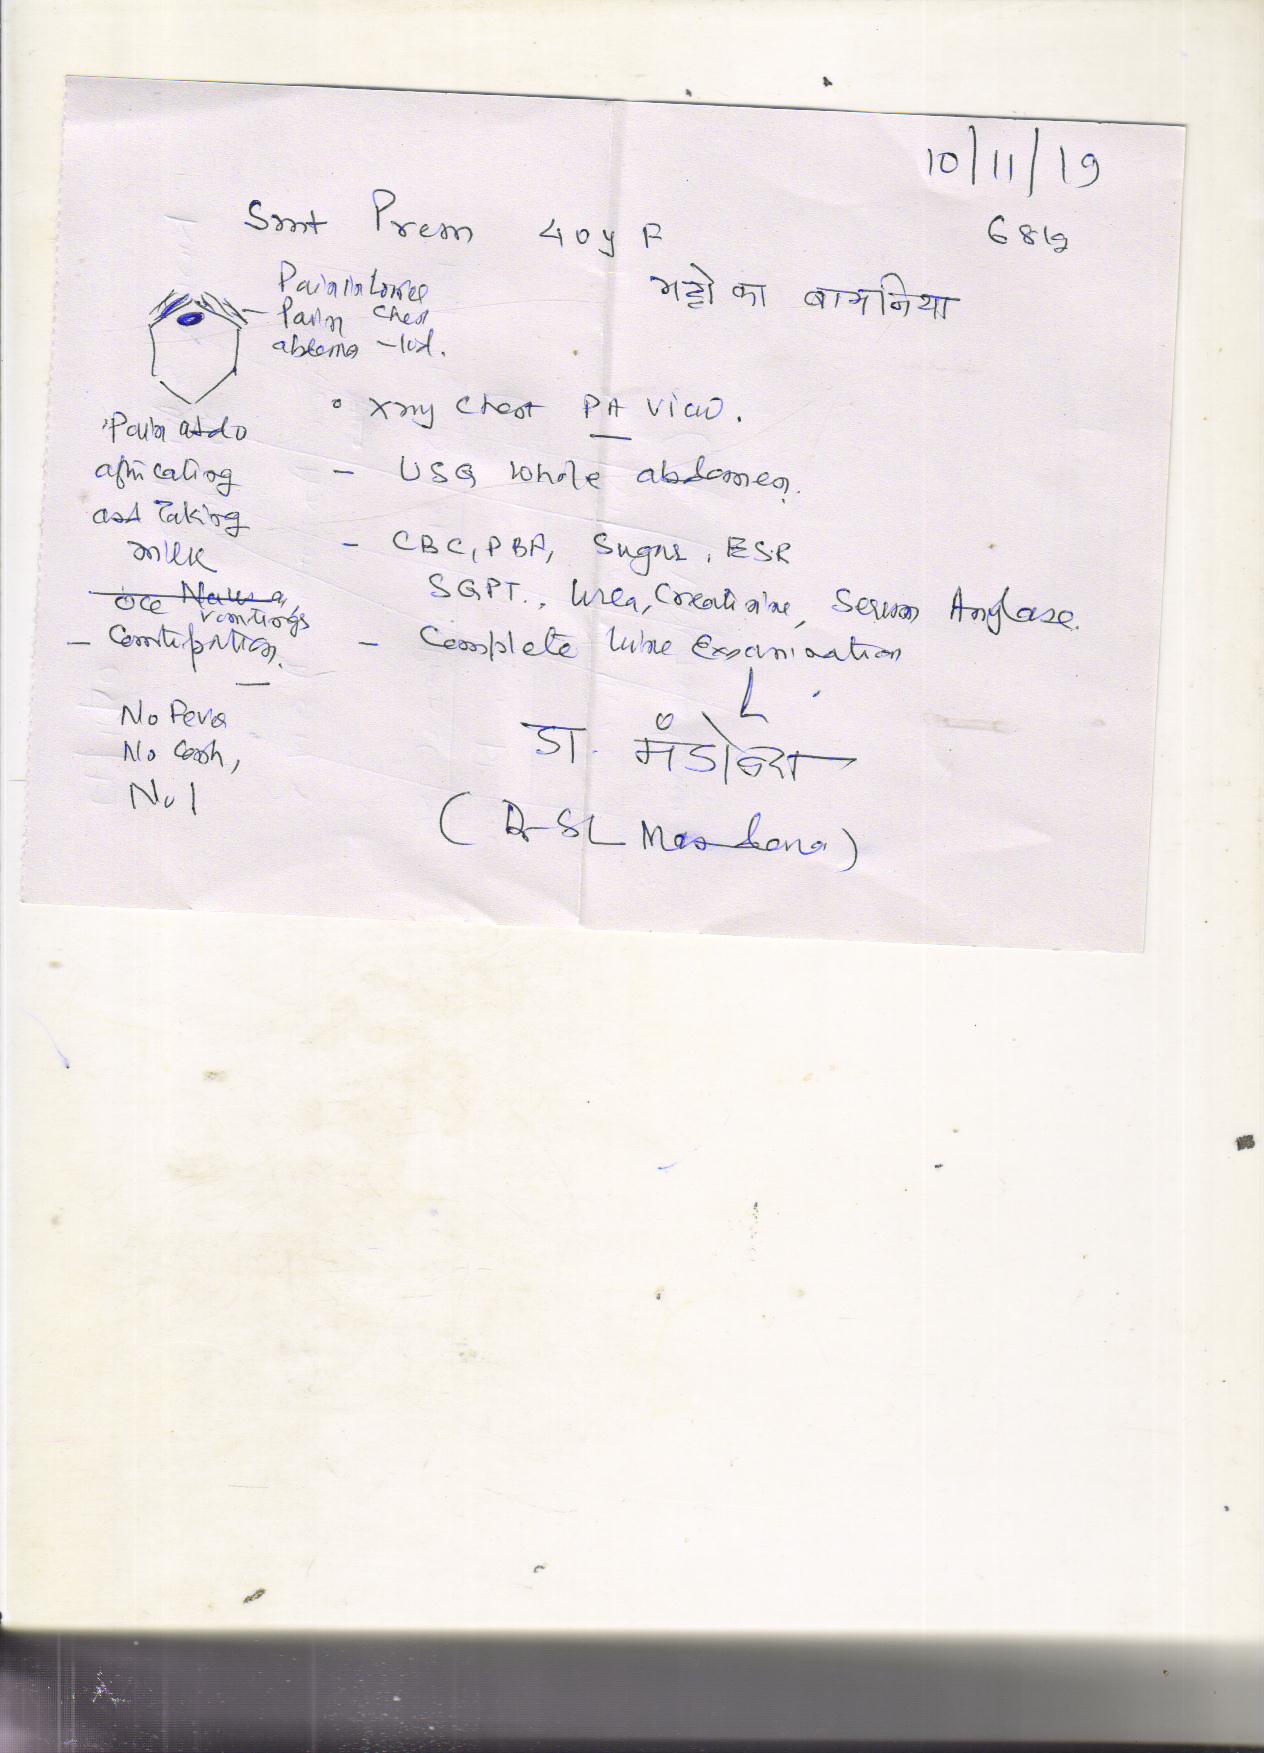 10/11/19
Smt Prem 40y F
भट्टो का बामनिया
Pain in Lower
Part Chest
abdomen
Pain abdo
after eating
and Taking
milk
vomitings
- Constipation.
No Fever
No Cough,
• Xray Chest PA View.
- USG Whole abdomen.
- CBC, PBF, Sugar, ESR
SGPT., Urea, Creatinine, Serum Amylase.
- Complete Urine Examination
डा.
(Dr SL Mandowara)